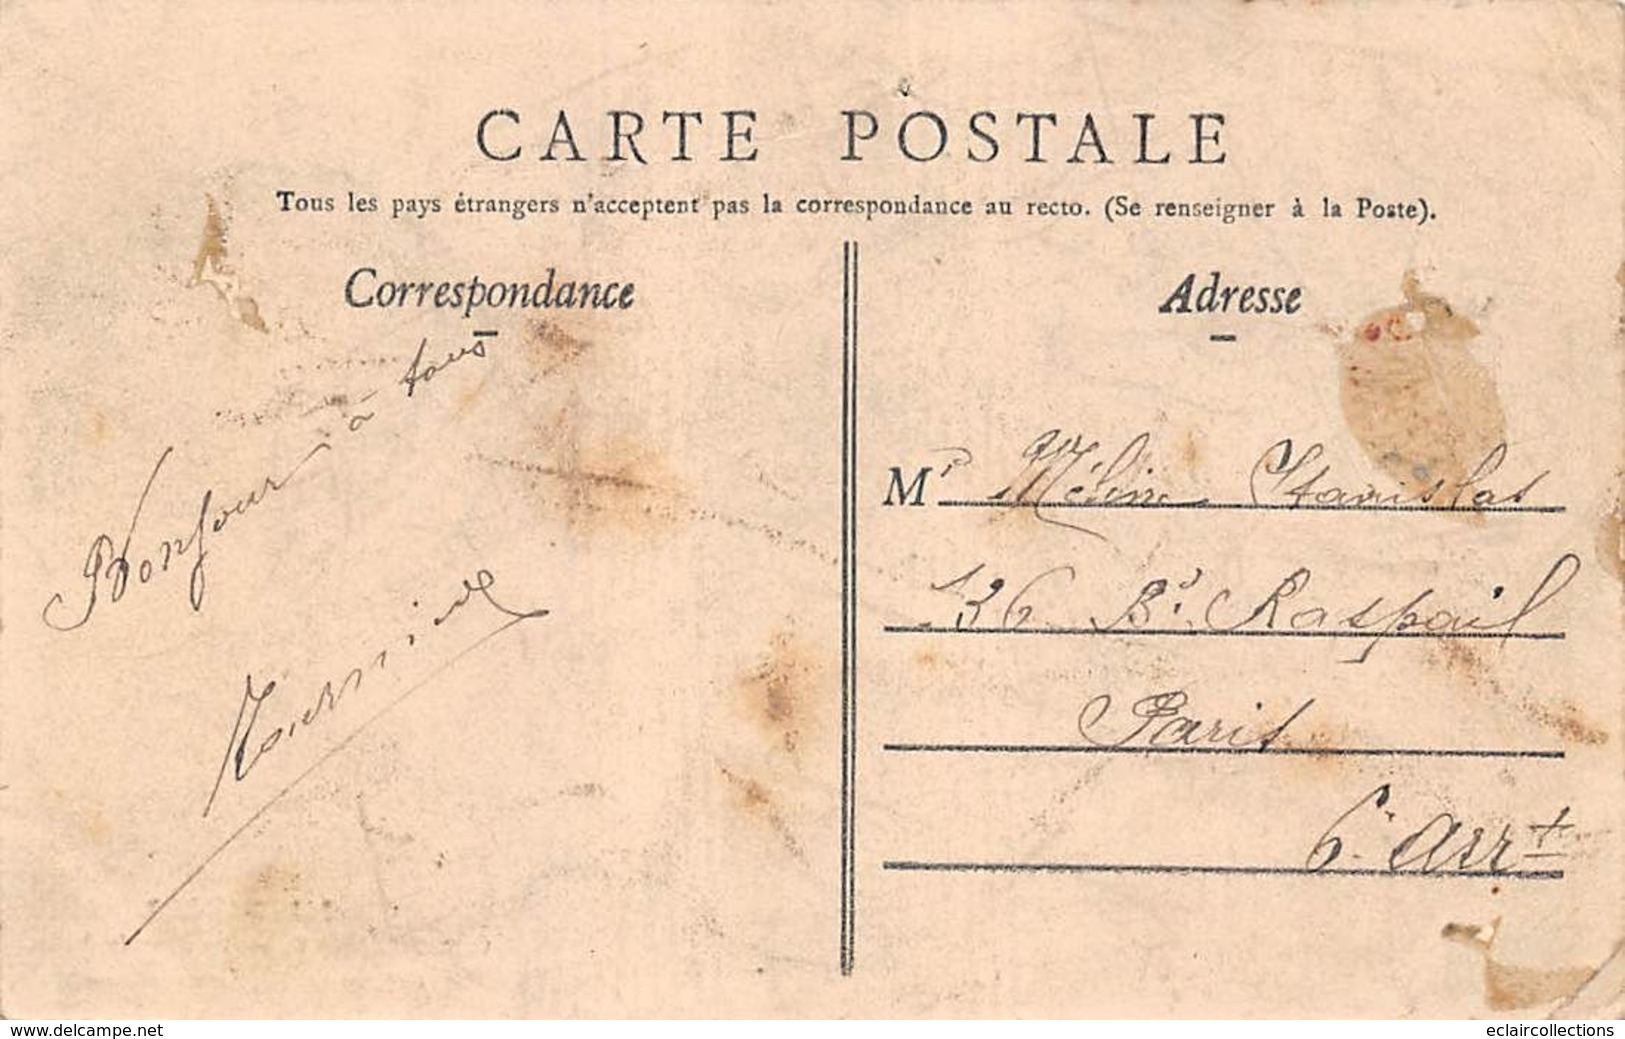 CARTE POSTALE
Tous les pays étrangers n'acceptent pas la correspondance au recto. (Se renseigner à la Poste).
Correspondance
Adresse
Bonjour à tous
Mr Méline Stanislas
136 Bd. Raspail
Paris
6e Arrt
www.delcampe.net
eclaircollections